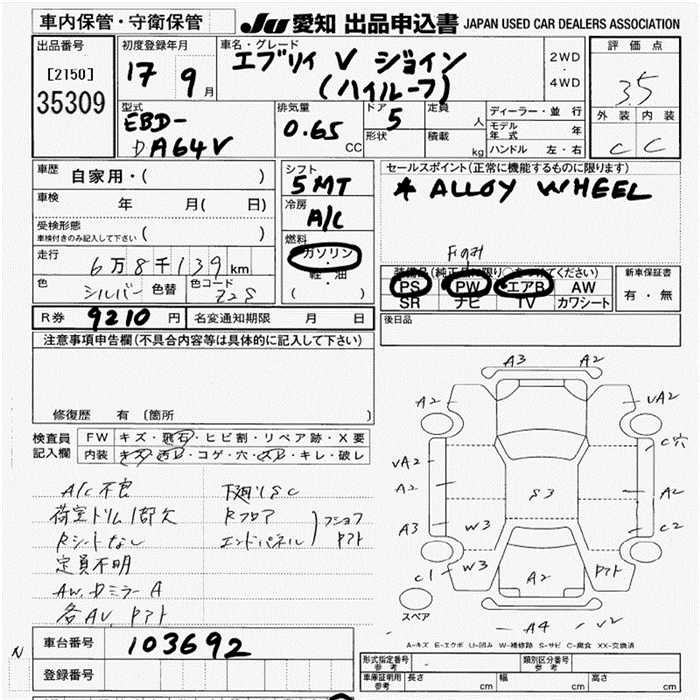 車内保管・守衛保管
JU 愛知 出品申込書 JAPAN USED CAR DEALERS ASSOCIATION
出品番号
[2150]
35309
初度登録年月
17 9 月
車名・グレード
エブリイ V ジョイン
(ハイルーフ)
2WD
・
4WD
評価点
3.5
外装 内装
C C
型式
EBD-
DA64V
排気量
0.65 CC
ドア 5
形状
定員 人
積載 kg
ディーラー・並行
モデル年式 年
ハンドル 左・右
車歴 自家用・( )
車検 年 月( 日)
受検形態
車検付きのみ記入して下さい ( )
走行 6万8千139 km
色 シルバー 色替 色コード Z2S
シフト
5MT
冷房
A/C
燃料
ガソリン
・
軽油
( )
セールスポイント(正常に機能するものに限ります)
* ALLOY WHEEL
装備品(純正品に限り○をつけてください)
PS PW エアB AW
SR ナビ TV カワシート
新車保証書
有・無
R券 9210 円 名変通知期限 月 日
後日品
注意事項申告欄(不具合内容等は具体的に記入して下さい)
修復歴 有 (箇所 )
検査員
記入欄
FW キズ・飛石・ヒビ割・リペア跡・X要
内装 キズ・汚レ・コゲ・穴・スレ・キレ・破レ
A/C不良
荷室トリム1部欠
Rシートなし
定員不明
AW, Dミラー A
各AV, ヤアト
下廻りSC
Rフロア
エンドパネル
ヤアト
A3 A2
A2 VA2
C穴
VA2
A2 S3 A2
A3 W3 C2
C1 W3 A2 ヤアト
スペア
A4 V2
A-キズ E-エクボ U-凹み W-補修跡 S-サビ C-腐食 XX-交換済
N
車台番号 103692
登録番号
形式指定番号
参考
類別区分番号
参考
車庫証明用
参考
長さ cm 幅 cm 高さ cm